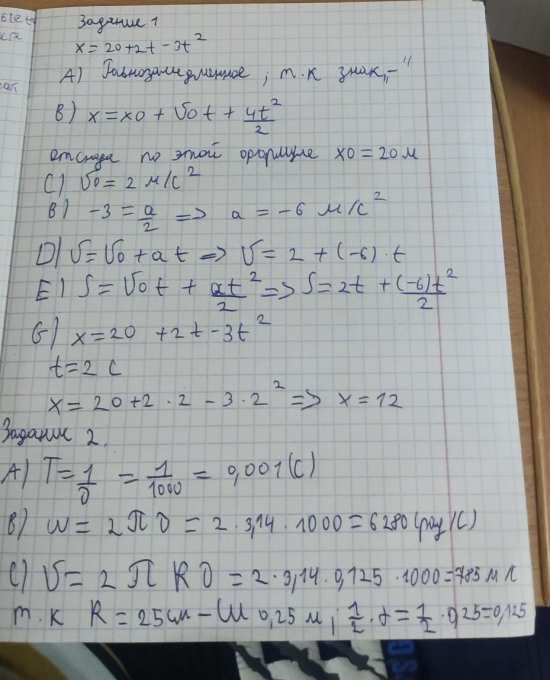 Задание 1
x = 20+2t - 3t²
A) Равнозамедленное, т.к знак „-"
B) x = x0 + v0t + 4t²/2
отсюда по этой формуле x0 = 20 м
C) v0 = 2 м/с²
B) -3 = a/2 => a = -6 м/с²
D) v = v0 + at => v = 2 + (-6) · t
E) S = v0t + at²/2 => S = 2t + (-6)t²/2
G) x = 20 + 2t - 3t²
t = 2 c
x = 20 + 2 · 2 - 3 · 2² => x = 12
Задание 2.
A) T = 1/υ = 1/1000 = 0,001 (с)
B) ω = 2πυ = 2 · 3,14 · 1000 = 6280 (рад/с)
C) v = 2πRυ = 2 · 3,14 · 0,125 · 1000 = 785 м/с
т.к R = 25см - 0,25 м; 1/2 · d = 1/2 · 0,25 = 0,125